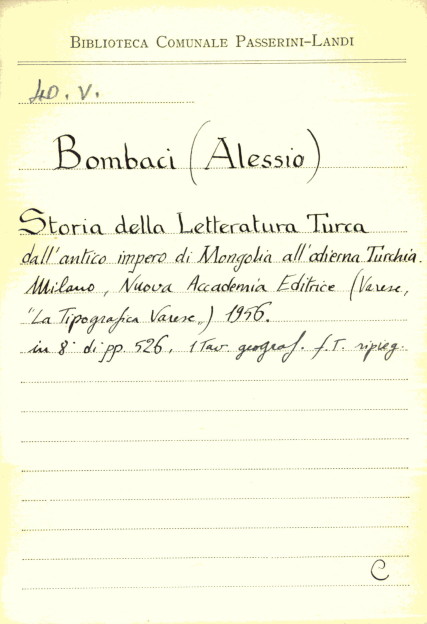 BIBLIOTECA COMUNALE PASSERINI-LANDI
40. V.
Bombaci (Alessio)
Storia della Letteratura Turca
dall'antico impero di Mongolia all'odierna Turchia.
Milano, Nuova Accademia Editrice (Varese,
"La Tipografica Varese„) 1956.
in 8° di pp. 526. 1 Tav. geograf. f. T. ripieg.
C